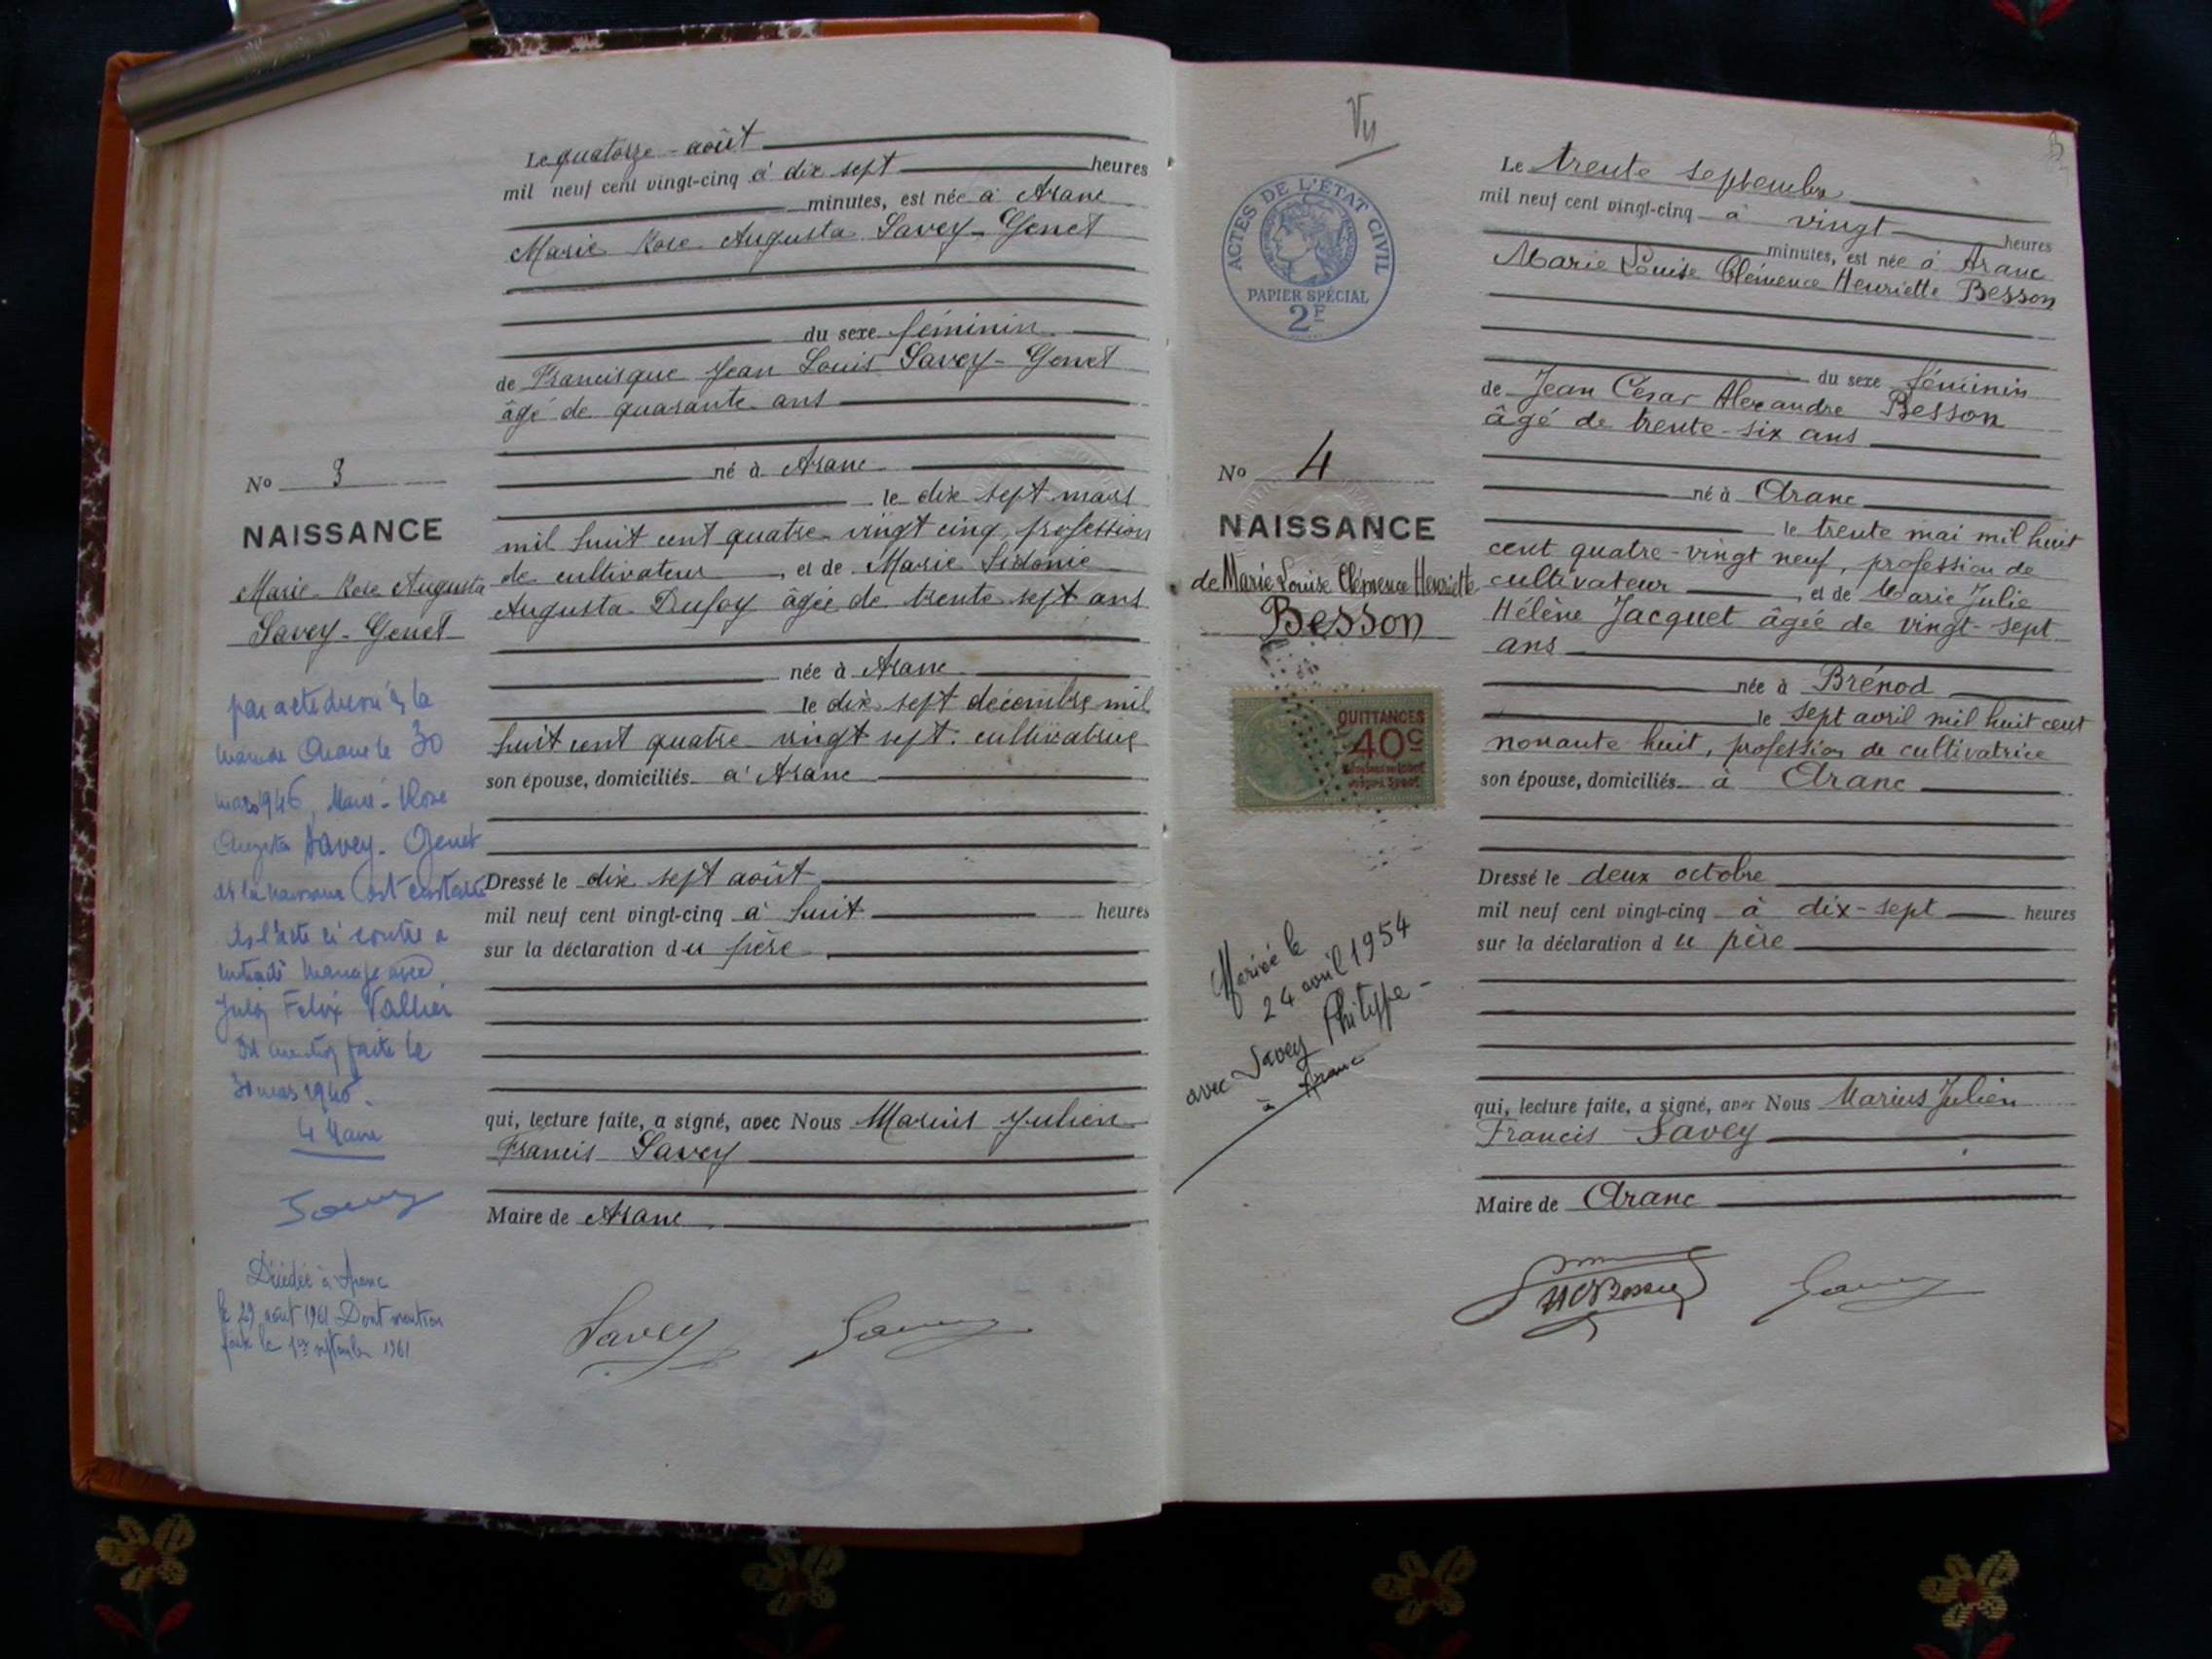 Le quatorze août
mil neuf cent vingt-cinq à dix sept heures
minutes, est née à Aranc
Marie Rose Augusta Savey-Genet
du sexe féminin
de Francisque Jean Louis Savey-Genet
âgé de quarante ans
né à Aranc
le dix sept mars
mil huit cent quatre-vingt cinq, profession
de cultivateur, et de Marie Sidonie
Augusta Dufoy âgée de trente sept ans
née à Aranc
le dix sept décembre mil
huit cent quatre vingt sept. cultivatrice
son épouse, domiciliés à Aranc
Dressé le dix sept août
mil neuf cent vingt-cinq à huit heures
sur la déclaration du père
qui, lecture faite, a signé, avec Nous Marius Julien
Francis Savey
Maire de Aranc
Savey Savey
No 3
NAISSANCE
Marie-Rose Augusta
Savey-Genet
par acte à la
mairie Aranc le 30
mars 1946, Marie-Rose
Augusta Savey-Genet
dt la naissance est constatée
ds l'acte ci contre a
contracté mariage avec
Félix Vallier
Dt mention faite le
30 mars 1946.
Le Maire
Savey
Décédée à Aranc
le 29 août 1961 Dont mention
faite le 1er septembre 1961
Vu
ACTES DE L'ÉTAT CIVIL
PAPIER SPÉCIAL
2F
No 4
NAISSANCE
de Marie Louise Clémence Henriette
Besson
QUITTANCES
40c
Marié le
24 avril 1954
avec Savey Philippe-
à Aranc
Le trente septembre
mil neuf cent vingt-cinq à vingt heures
minutes, est née à Aranc
Marie Louise Clémence Henriette Besson
du sexe féminin
de Jean César Alexandre Besson
âgé de trente-six ans
né à Aranc
le trente mai mil huit
cent quatre-vingt neuf, profession de
cultivateur, et de Marie Julie
Hélène Jacquet âgée de vingt-sept
ans
née à Brénod
le sept avril mil huit cent
nonante huit, profession de cultivatrice
son épouse, domiciliés à Aranc
Dressé le deux octobre
mil neuf cent vingt-cinq à dix-sept heures
sur la déclaration du père
qui, lecture faite, a signé, avec Nous Marius Julien
Francis Savey
Maire de Aranc
Besson Savey